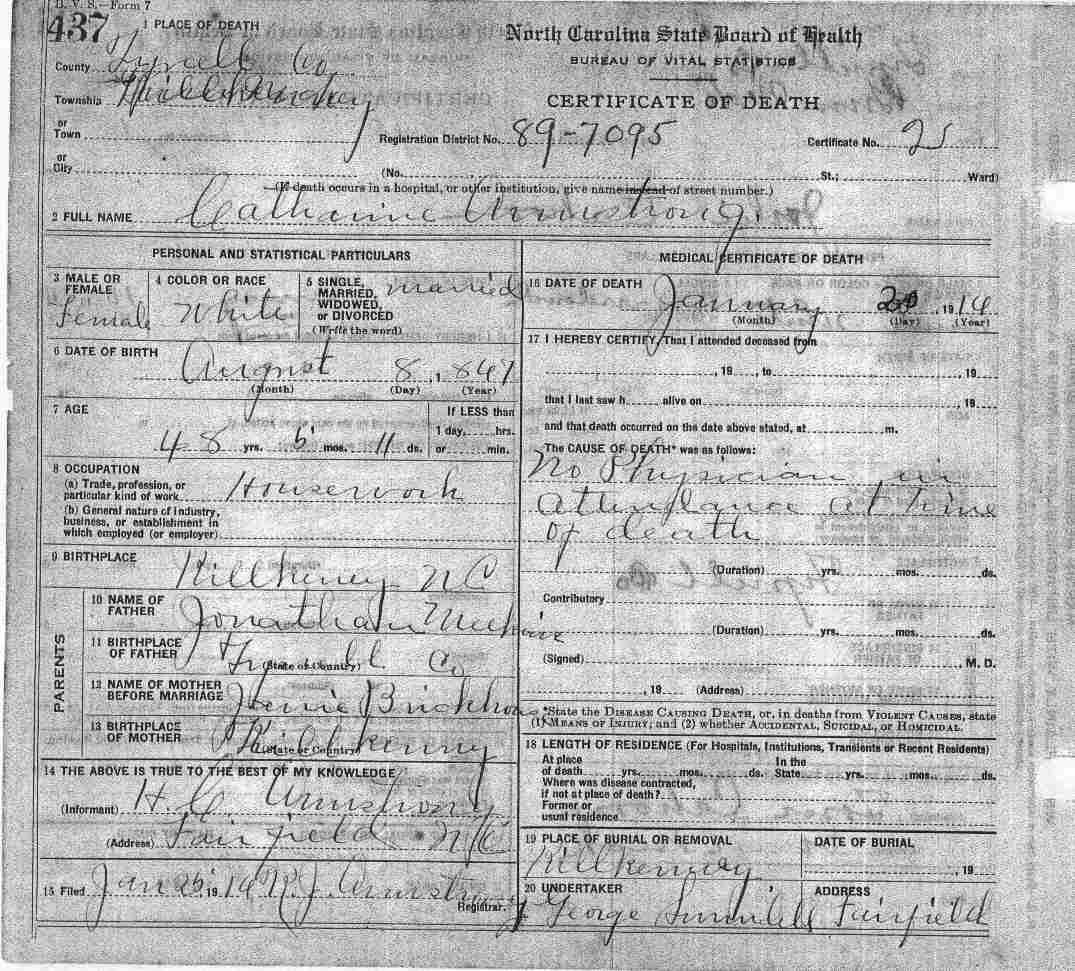 B. V. S.—Form 7
437
1 PLACE OF DEATH
North Carolina State Board of Health
BUREAU OF VITAL STATISTICS
CERTIFICATE OF DEATH
County Tyrrell Co
Township Killkenney
or
Town
Registration District No. 89-7095
Certificate No. 25
or
City
(No. St.; Ward)
(If death occurs in a hospital, or other institution, give name instead of street number.)
2 FULL NAME Catharine Armstrong.
PERSONAL AND STATISTICAL PARTICULARS
3 MALE OR FEMALE Female
4 COLOR OR RACE White
5 SINGLE, MARRIED, WIDOWED, or DIVORCED (Write the word) married
6 DATE OF BIRTH
August 8, 1867
(Month) (Day) (Year)
7 AGE
48 yrs. 5 mos. 11 ds.
If LESS than
1 day, hrs.
or min.
8 OCCUPATION
(a) Trade, profession, or
particular kind of work Housework
(b) General nature of industry,
business, or establishment in
which employed (or employer)
9 BIRTHPLACE Killkenney NC
PARENTS
10 NAME OF FATHER Jonathan
11 BIRTHPLACE OF FATHER (State or Country) Tyrrell Co
12 NAME OF MOTHER BEFORE MARRIAGE Brickhouse
13 BIRTHPLACE OF MOTHER (State or Country) Killkenny
14 THE ABOVE IS TRUE TO THE BEST OF MY KNOWLEDGE
(Informant) H. C. Armstrong
(Address) Fairfield NC
15 Filed Jan 26 1914 R. J. Armstrong
Registrar.
MEDICAL CERTIFICATE OF DEATH
16 DATE OF DEATH
January 20, 1914
(Month) (Day) (Year)
17 I HEREBY CERTIFY, That I attended deceased from
, 19 , to , 19
that I last saw h alive on , 19
and that death occurred on the date above stated, at m.
The CAUSE OF DEATH* was as follows:
No Physician in
attendance at time
of death
(Duration) yrs. mos. ds.
Contributory
(Duration) yrs. mos. ds.
(Signed) M. D.
, 19 (Address)
*State the DISEASE CAUSING DEATH, or, in deaths from VIOLENT CAUSES, state
(1) MEANS OF INJURY; and (2) whether ACCIDENTAL, SUICIDAL, or HOMICIDAL.
18 LENGTH OF RESIDENCE (For Hospitals, Institutions, Transients or Recent Residents)
At place In the
of death yrs. mos. ds. State yrs. mos. ds.
Where was disease contracted,
if not at place of death?
Former or
usual residence
19 PLACE OF BURIAL OR REMOVAL
Killkenney
DATE OF BURIAL
, 19
20 UNDERTAKER
George
ADDRESS
Fairfield